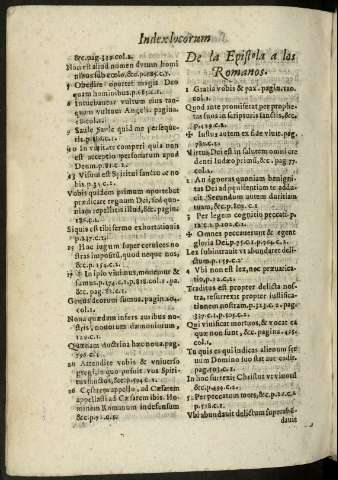 Index locorum
&c. pag. 332. col. 2.
Nec est aliud nomen datum homi
nibus sub cœlo, &c. p. 185. c. 1.
5 Obedire oportet magis Deo
quam hominibus, p. 185. c. 1.
6 Intuebantur vultum eius tan
quam vultum Angeli. pagina
col. 1.
9 Saule Saule quid me perseque
ris. p.
10 In veritate comperi quia non
est acceptio personarum apud
Deum. p. 81. c. 2.
13 Visum est Spiritui sancto & no
bis. p. 31. c. 2.
Vobis quidem primum oportebat
prædicare regnum Dei, sed quo-
niam repellitis illud, &c. pag.
181. c. 1.
Siquis est tibi sermo exhortationis
p. 147. c. 1.
15 Hac iugum super ceruices no
stras imposuit, quod neque nos,
&c. p. 154. c. 2.
17 In ipso viuimus, mouemur &
sumus. p. 174. c. 1. p. 818. col. 2. pa.
&c. pag. 181. c. 1.
Genus deorum sumus, pagina 204.
col. 2.
Noua quædam infers auribus no-
stris, nouorum dæmoniorum,
129. c. 1.
Quænam doctrina hæc noua. pag.
796. c. 1.
20 Attendite vobis & vniuerso
gregi, in quo posuit vos Spiri-
tus sanctus, &c. p. 504. c. 2.
26 Cæsarem appellasti, ad Cæsarem
appellasti ad Cæsarem ibis. Ho-
minem Romanum indefensum
&c. p. 72. c. 2.
De la Epistola a los
Romanos.
1 Gratia vobis & pax. pagin. 120.
col. 2.
Quod ante promiserat per prophe
tas suos in scripturis sanctis, &c.
p. 129. c. 2.
Iustus autem ex fide viuit. pag.
782. c. 1.
Virtus Dei est in salutem omni cre
denti Iudæo primũ, &c. pag. 77.
col. 1.
2 An ignoras quoniam benigni
tas Dei ad pœnitentiam te addu-
cit. Secundum autem duritiam
tuam, &c. p. 805. c. 1.
3 Per legem cognitio peccati. p.
122. c. 1. p. 202. c. 1.
Omnes peccauerunt & egent
gloria Dei. p. 25. c. 1. p. 764. c. 2.
Lex subintrauit vt abundaret deli-
ctum. p. 159. c. 2.
4 Vbi non est lex, nec præuarica-
tio. p. 212. c. 1.
Traditus est propter delicta no-
stra, resurrexit propter iustifica-
tionem nostram. p. 313. c. 1. p. 348. c. 2.
Qui viuificat mortuos, & vocat ea
quæ non sunt, &c. pag. 485.
col. 1.
Tu quis es qui iudicas alienum ser
uum Domino suo stat aut cadit.
pag. 703. c. 1.
In hoc surrexit Christus vt viuorũ
&c. p. 459. c. 2.
5 Per peccatum mors, &c. p. 126. c. 2.
p. 578. c. 2.
Vbi abundauit delictum superabũ
dauit